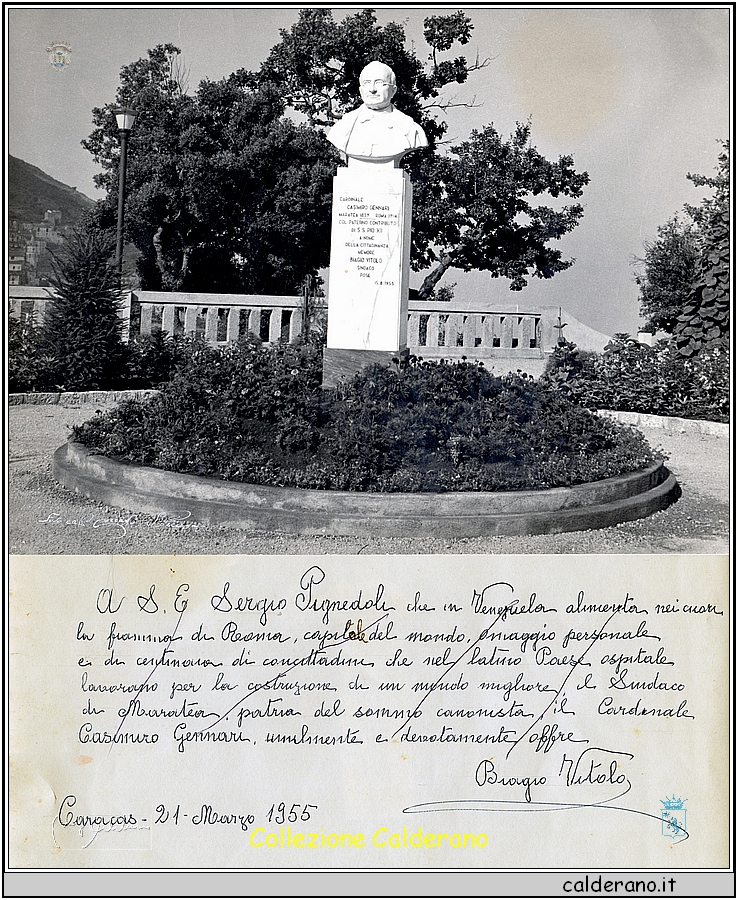 CARDINALE
CASIMIRO GENNARI
MARATEA 1839 ROMA 1914
COL PATERNO CONTRIBUTO
DI S.S. PIO XII
A NOME
DELLA CITTADINANZA
MEMORE
BIAGIO VITOLO
SINDACO
POSE
15.8.1953
A S. E Sergio Pignedoli che in Venezuela alimenta nei cuori
la fiamma di Roma, capitale del mondo, omaggio personale
e di centinaia di concittadini che nel latino Paese ospitale
lavorano per la costruzione di un mondo migliore, il Sindaco
di Maratea, patria del sommo canonista, il Cardinale
Casimiro Gennari, umilmente e devotamente offre
Biagio Vitolo
Caracas - 21 - Marzo 1955
Collezione Calderano
calderano.it